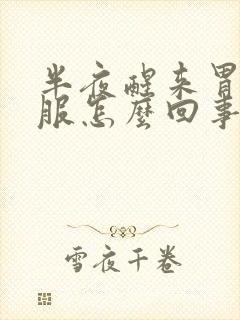 半夜醒来胃
服怎麼回事
雪夜千卷